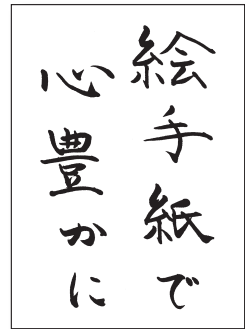 絵手紙で
心豊かに